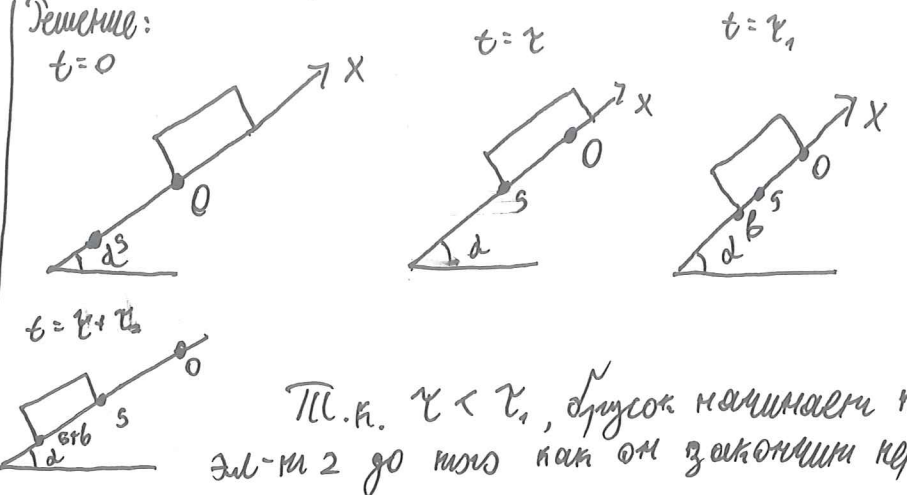 Решение:
t=0
X
O
S
α
t=τ
X
O
S
α
t=τ₁
X
O
S
b
α
t=τ+τ₂
O
S
s+b
α
Т.к. τ < τ₁, брусок начинает
эл-т 2 до того как он закончит